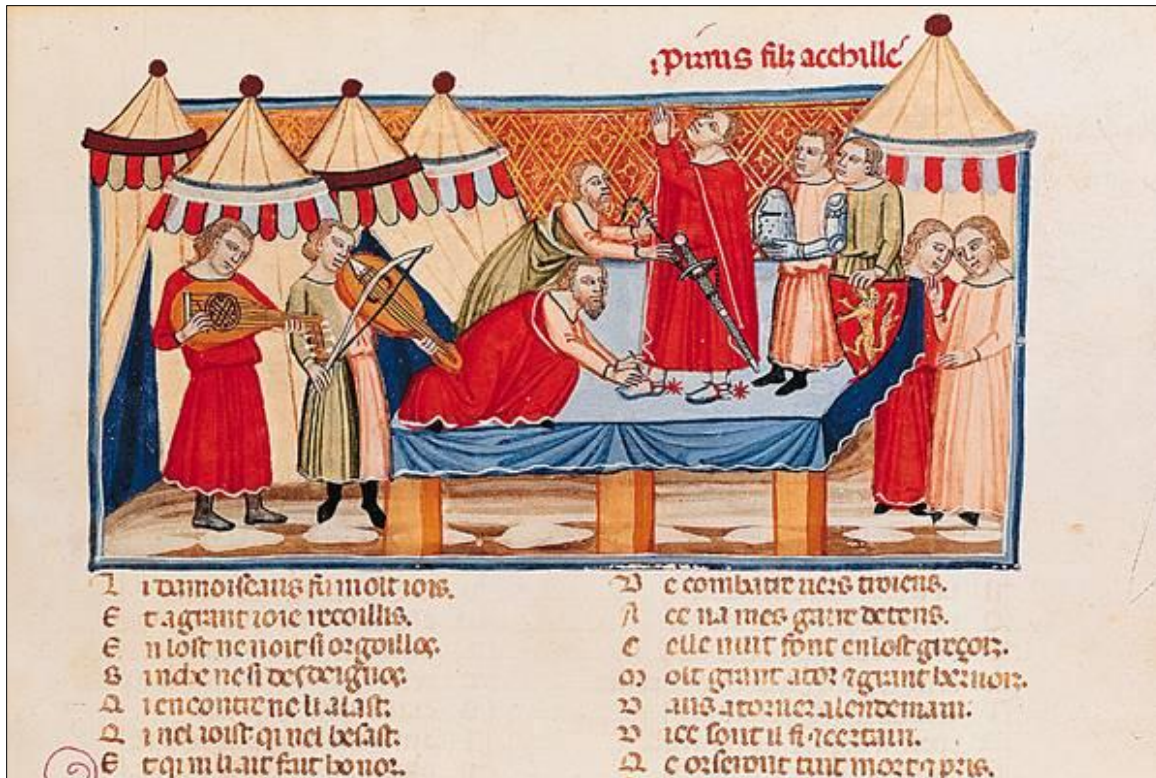 pirrus filz acchille
L i damoiseaus fu molt iois.
E t a grant ioie recoillis.
E n lost ne noit si orgoillos.
B mche ne si desdeignos.
Q i encontre ne li alast.
Q i nel ioist qui nel besast.
E t qui ni li ait fait honor.
D e combatre uers troiens.
A ce na mes gaire de tens.
C elle nuit font en lost grezois.
M olt grant ator grant
D aus atorner alendemain.
D ice sont il fi certain.
Q e or seront tuit mort pris.